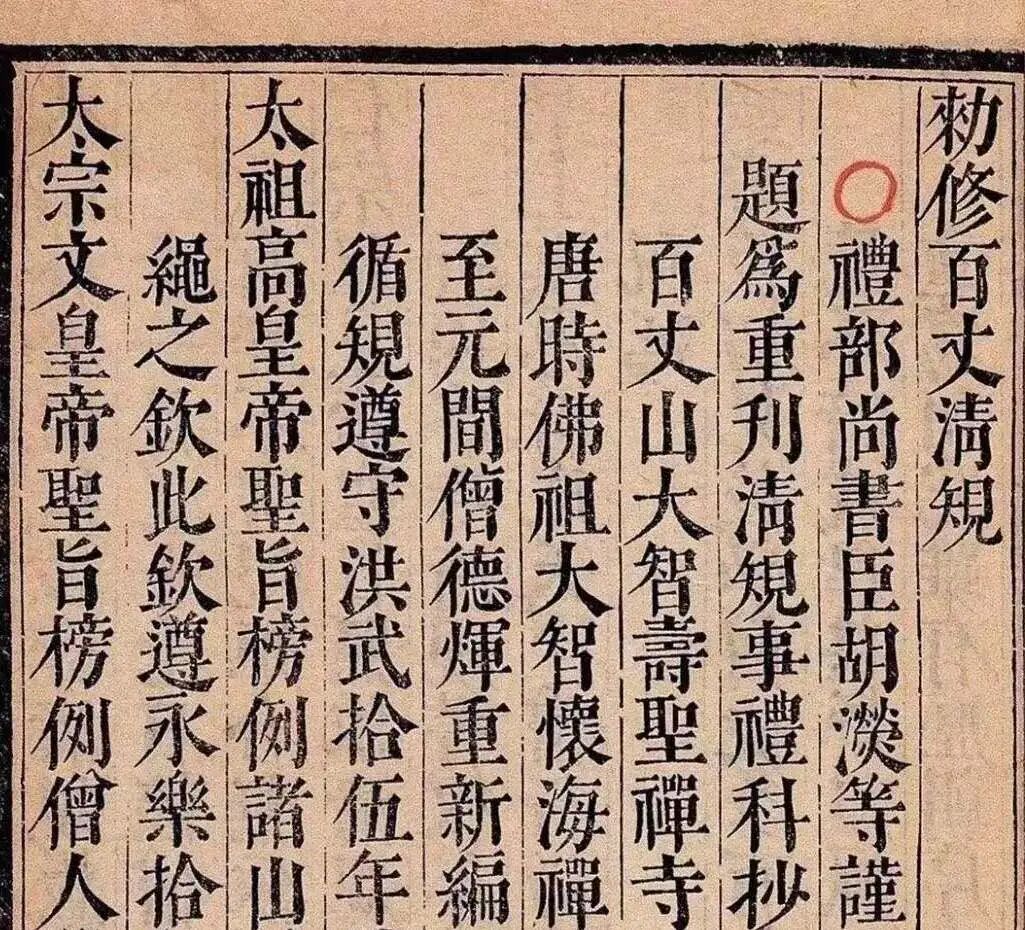 勑修百丈淸䂓
禮部尚書臣胡濙等謹
題爲重刋淸䂓事禮科抄
百丈山大智壽聖禪寺
唐時佛祖大智懷海禪
至元間僧德煇重新編
循䂓遵守洪武拾伍年
太祖高皇帝聖旨榜例諸山
繩之欽此欽遵永樂拾
太宗文皇帝聖旨榜例僧人